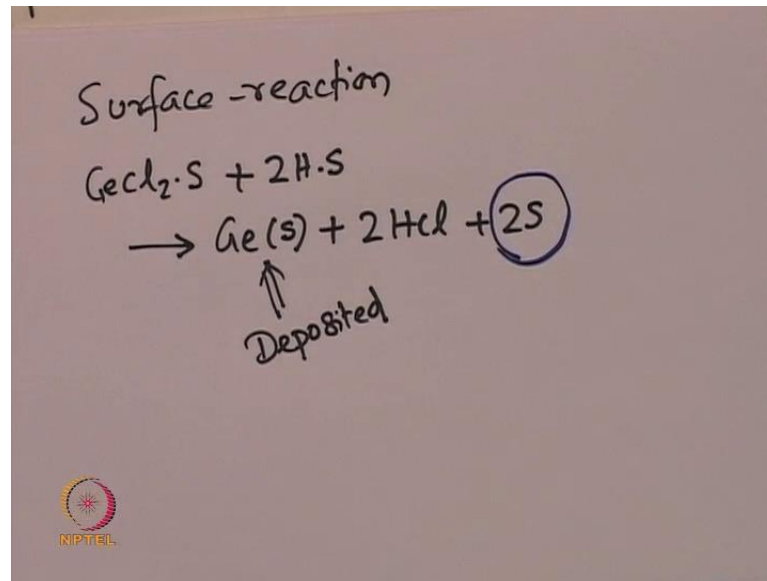 Surface-reaction
GeCl₂.S + 2H.S
→ Ge(s) + 2HCl + 2S
↑
Deposited
NPTEL